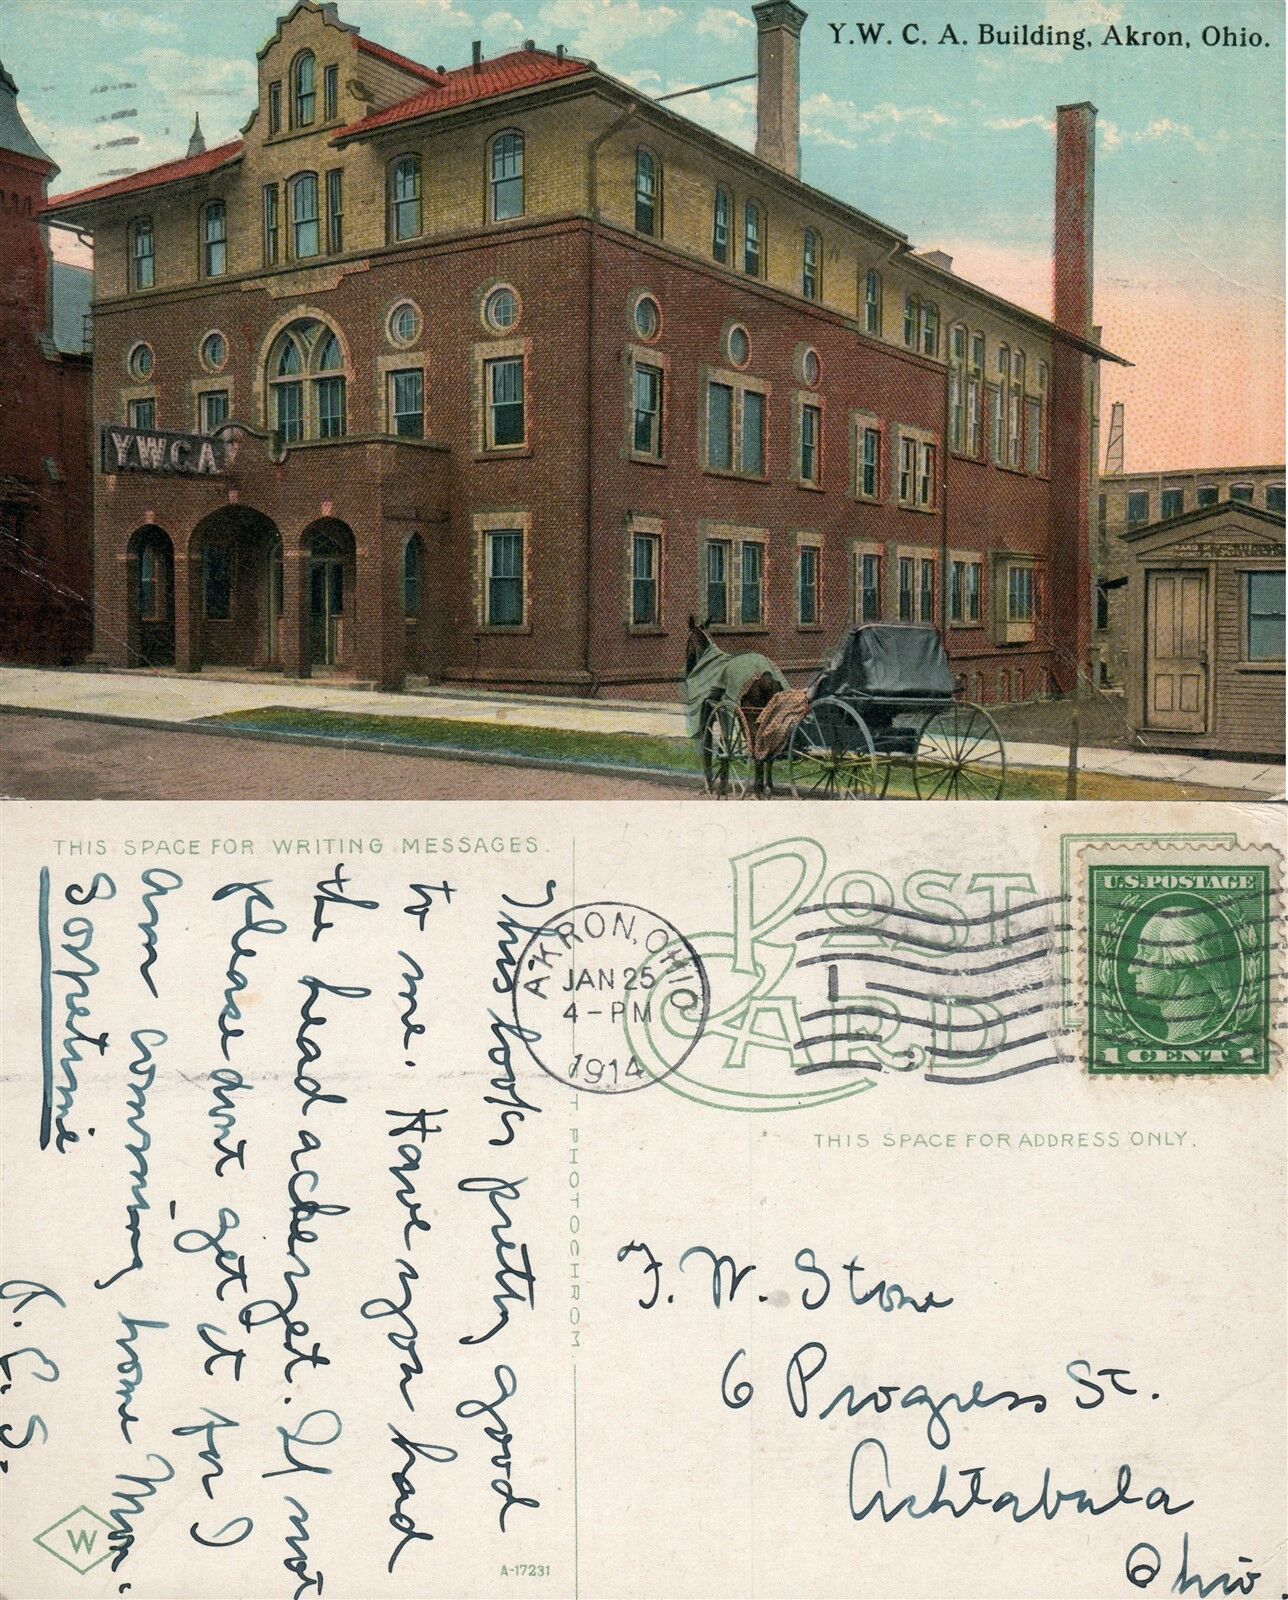 Y.W. C. A. Building, Akron, Ohio.
Y.W.C.A.
THIS SPACE FOR WRITING MESSAGES.
This looks pretty good
to me. Have you had
the headache yet. If not
Please dont get it for I
am coming home Mon.
Sometime
R. E. S.
W
A-17231
T PHOTOCHROM
AKRON, OHIO
JAN 25
4-PM
1914
POST
CARD
1
U.S. POSTAGE
1 CENT 1
THIS SPACE FOR ADDRESS ONLY.
F. W. Stone
6 Progress St.
Ashtabula
Ohio.